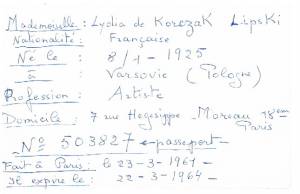 Mademoiselle : Lydia de Korczak Lipski
Nationalité : Française
Né le : 8/1-1925
à : Varsovie (Pologne)
Profession : Artiste
Domicile : 7 rue Hegesippe Moreau 18em
Paris
No 503827 passeport
Fait à Paris : le 23-3-1961 -
Il expire le : 22-3-1964 -